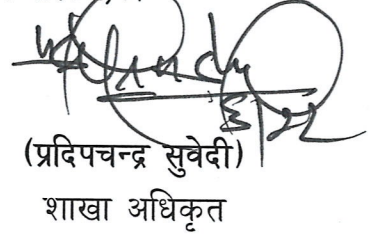 (प्रदिपचन्द्र सुवेदी)
शाखा अधिकृत